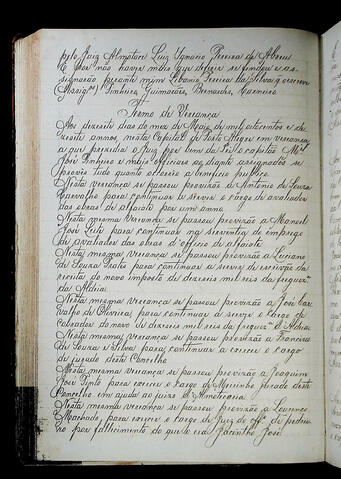 pelo Juiz Almotacé Luiz Ignacio Pereira de Abreu
E por não haver mais que deferir se findou e as-
signarão perante mim Libanio Pereira da Silva q o escrevi
Assig.os) Pinheiro, Guimarães, Bernardes, Carneiro
Termo de Vereança
Aos dezoito dias do mez de Maio de mil oitocentos e de-
zoito annos, nesta Capital de Porto Alegre em vereança
a que presidio o Juiz por bem da Lei o Capitão M.el
José Pinheiro e mais officiaes ao diante assignados se
proveo tudo quanto occorreo a beneficio publico.
Nesta vereança se passou provisão de Antonio de Souza
Carvalho para continuar a servir o cargo de avaliador
das obras de alfaiate por um anno.
Nesta mesma Vereança se passou provisão a Manoel
José Leite para continuar na serventia do emprego
de avaliador das obras do officio de alfaiate
Nesta mesma vereança se passou provisão a Luciano
de Souza para continuar a servir de escrivão da
receita do novo imposto de dezeseis mil reis da freguez.a
da Aldeia
Nesta mesma vereança se passou provisão a José Car-
valho de Oliveira, para continuar a servir o cargo de
Cobrador do novo de dezeseis mil reis da freguez.a d'Aldeia
Nesta mesma vereança se passou provisão a Francisco
de Souza e Silva, para continuar a exercer o cargo
de jurado deste Concelho
Nesta mesma vereança se passou provisão a Joaquim
José Pinto para exercer o cargo de Meirinho jurado deste
Concelho em ajuda ao juizo d'Almotaçaria
Nesta mesma vereança se passou provisão a Lourenço
Machado, para exercer o cargo de Juiz do off.o de pedrei-
ro por fallecimento do que o era Jacintho José